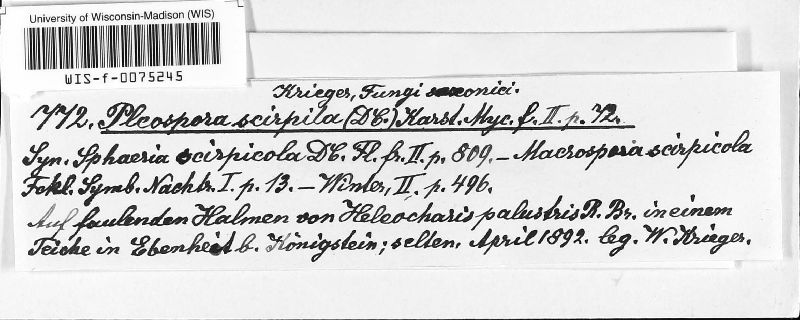 University of Wisconsin-Madison (WIS)
WIS-f-0075245
Krieger, Fungi saxonici.
772. Pleospora scirpila (DC.) Karst. Myc. f. II. p. 72.
Syn. Sphaeria scirpicola DC. Fl. fr. II. p. 809. – Macrospora scirpicola
Fckl. Symb. Nachtr. I. p. 13. – Winter, II. p. 496.
Auf faulenden Halmen von Heleocharis palustris R. Br. in einem
Teiche in Ebenheit b. Königstein; selten. April 1892. leg. W. Krieger.